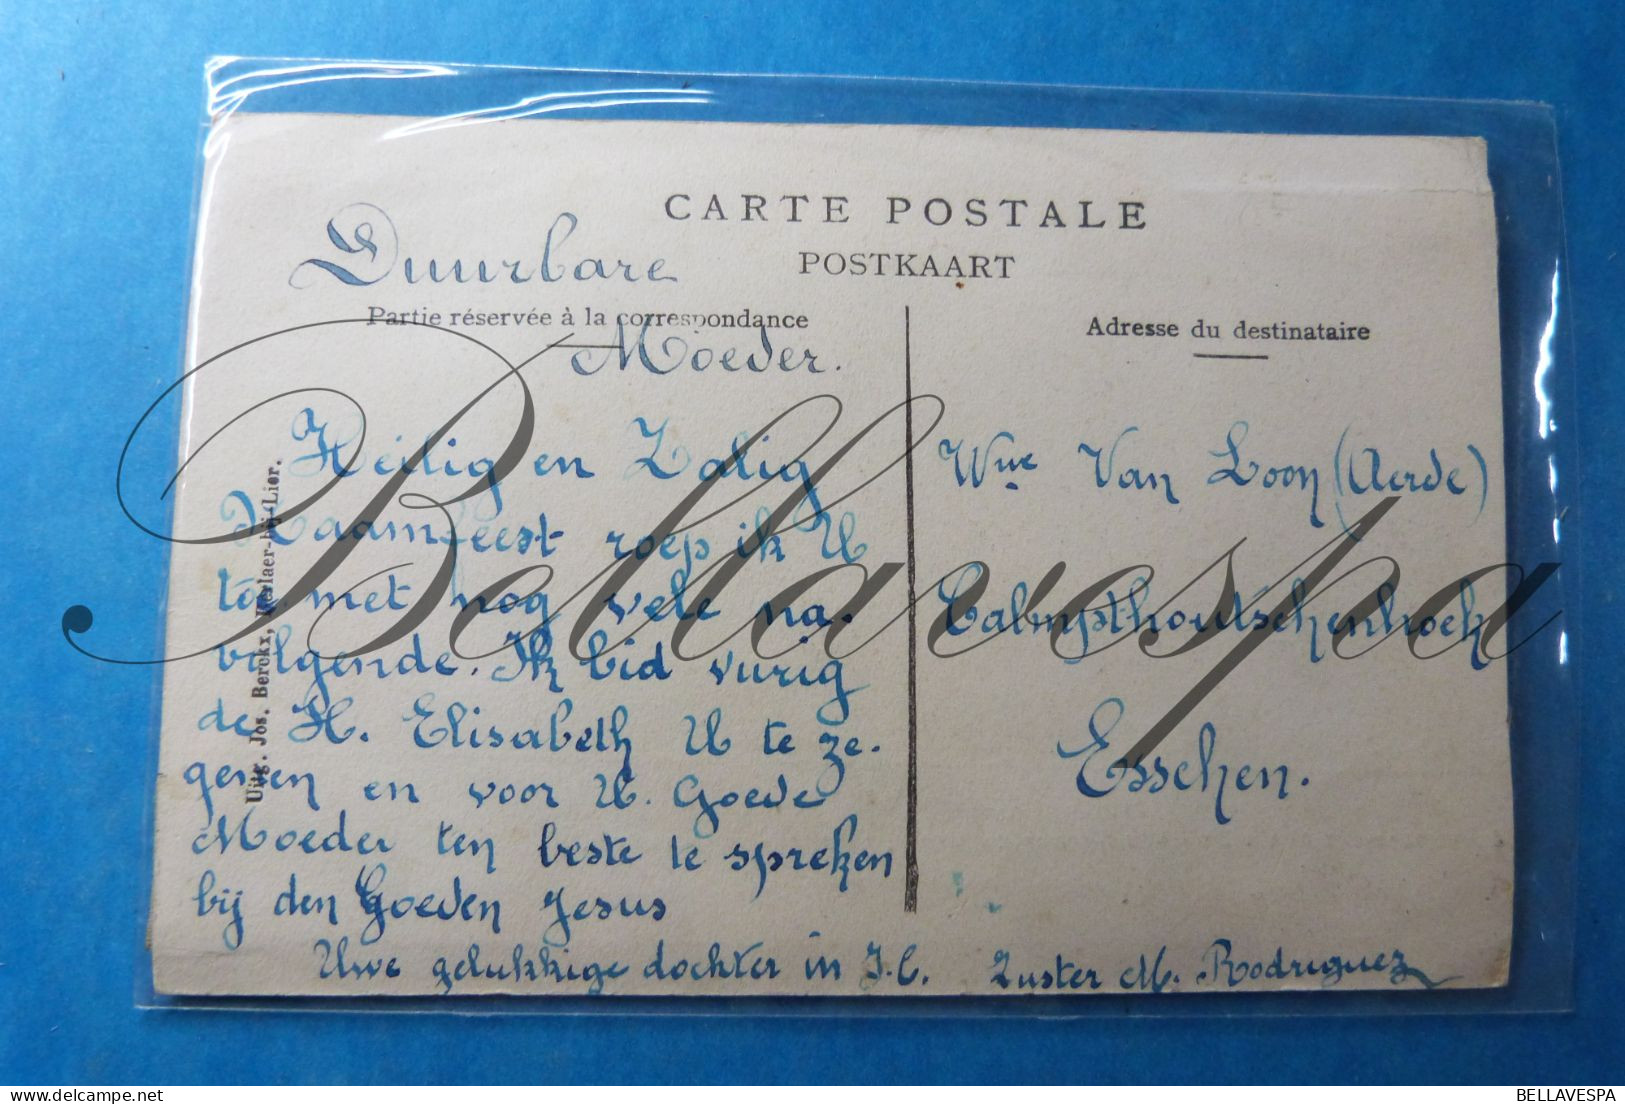 CARTE POSTALE
POSTKAART
Duurbare
Partie réservée à la correspondance
Moeder.
Heilig en Zalig
Naamfeest roep ik U
toe met nog vele na-
volgende. Ik bid vurig
de H. Elisabeth U te ze-
genen en voor U. Goede
Moeder ten beste te spreken
bij den Goeden Jesus
Uwe gelukkige dochter in J.C. Zuster M. Rodriguez
Adresse du destinataire
Wwe Van Loon (Aerde)
Calmpsthoutschenhoek
Esschen.
Uitg. Jos. Berckx, Kerlaer-bij-Lier.
Bellavespa
BELLAVESPA